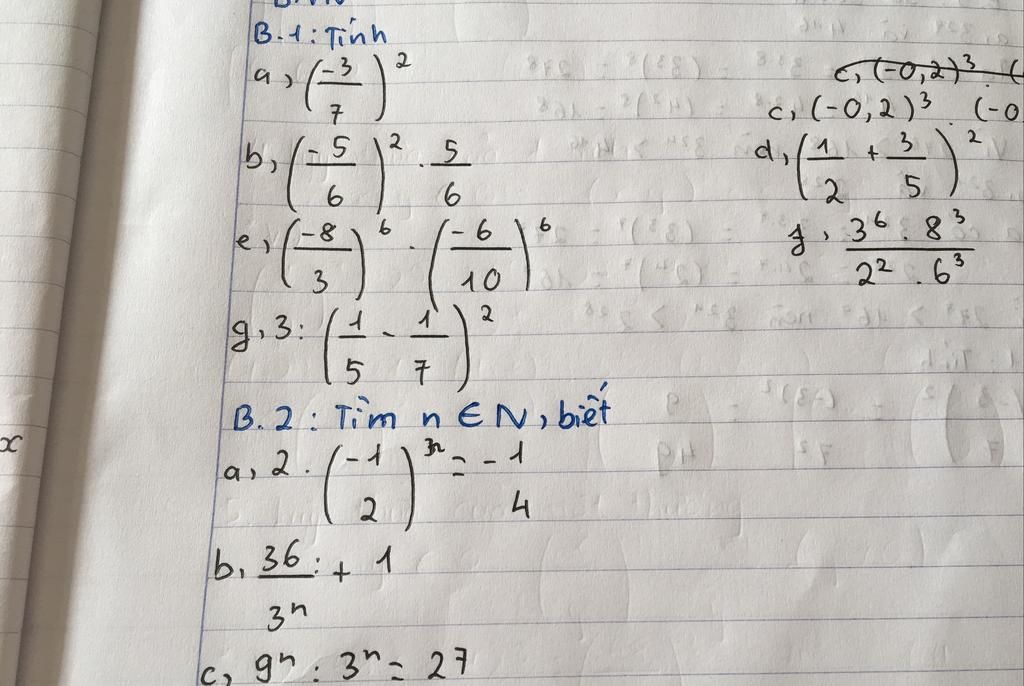 B.1: Tính
a, (-3/7)^2
c, (-0,2)^3 . (
c, (-0,2)^3 . (-0
b, (-5/6)^2 . 5/6
d, (1/2 + 3/5)^2
e, (-8/3)^6 . (-6/10)^6
f, 3^6 . 8^3 / 2^2 . 6^3
g, 3: (1/5 - 1/7)^2
B.2: Tìm n ∈ N, biết
a, 2 . (-1/2)^3n = -1/4
b, 36/3^n : + 1
c, 9^n : 3^n = 27
x